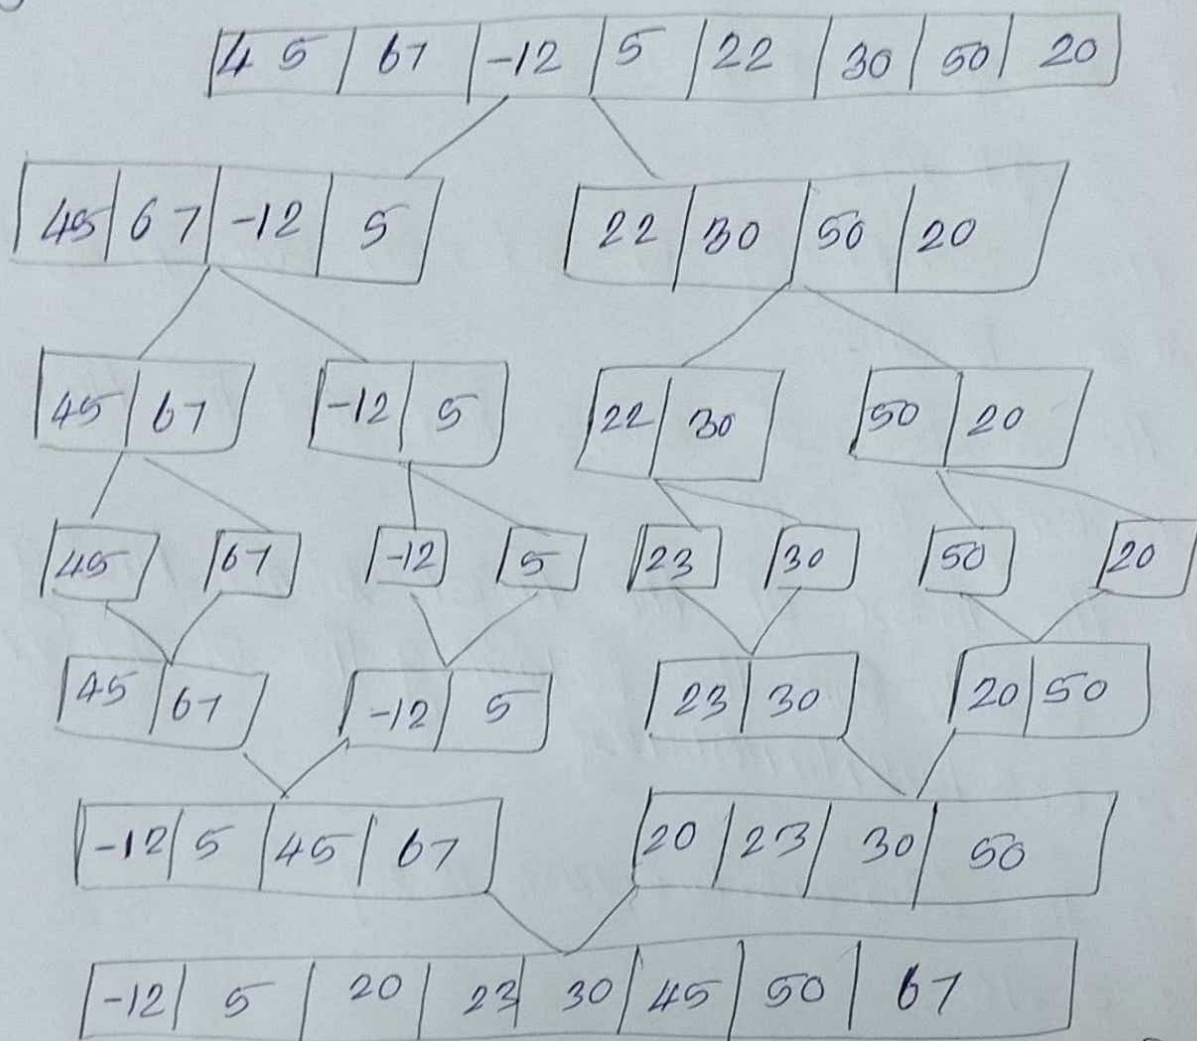 45 67 -12 5 22 30 50 20
45 67 -12 5 22 30 50 20
45 67 -12 5 22 30 50 20
45 67 -12 5 23 30 50 20
45 67 -12 5 23 30 20 50
-12 5 45 67 20 23 30 50
-12 5 20 23 30 45 50 67